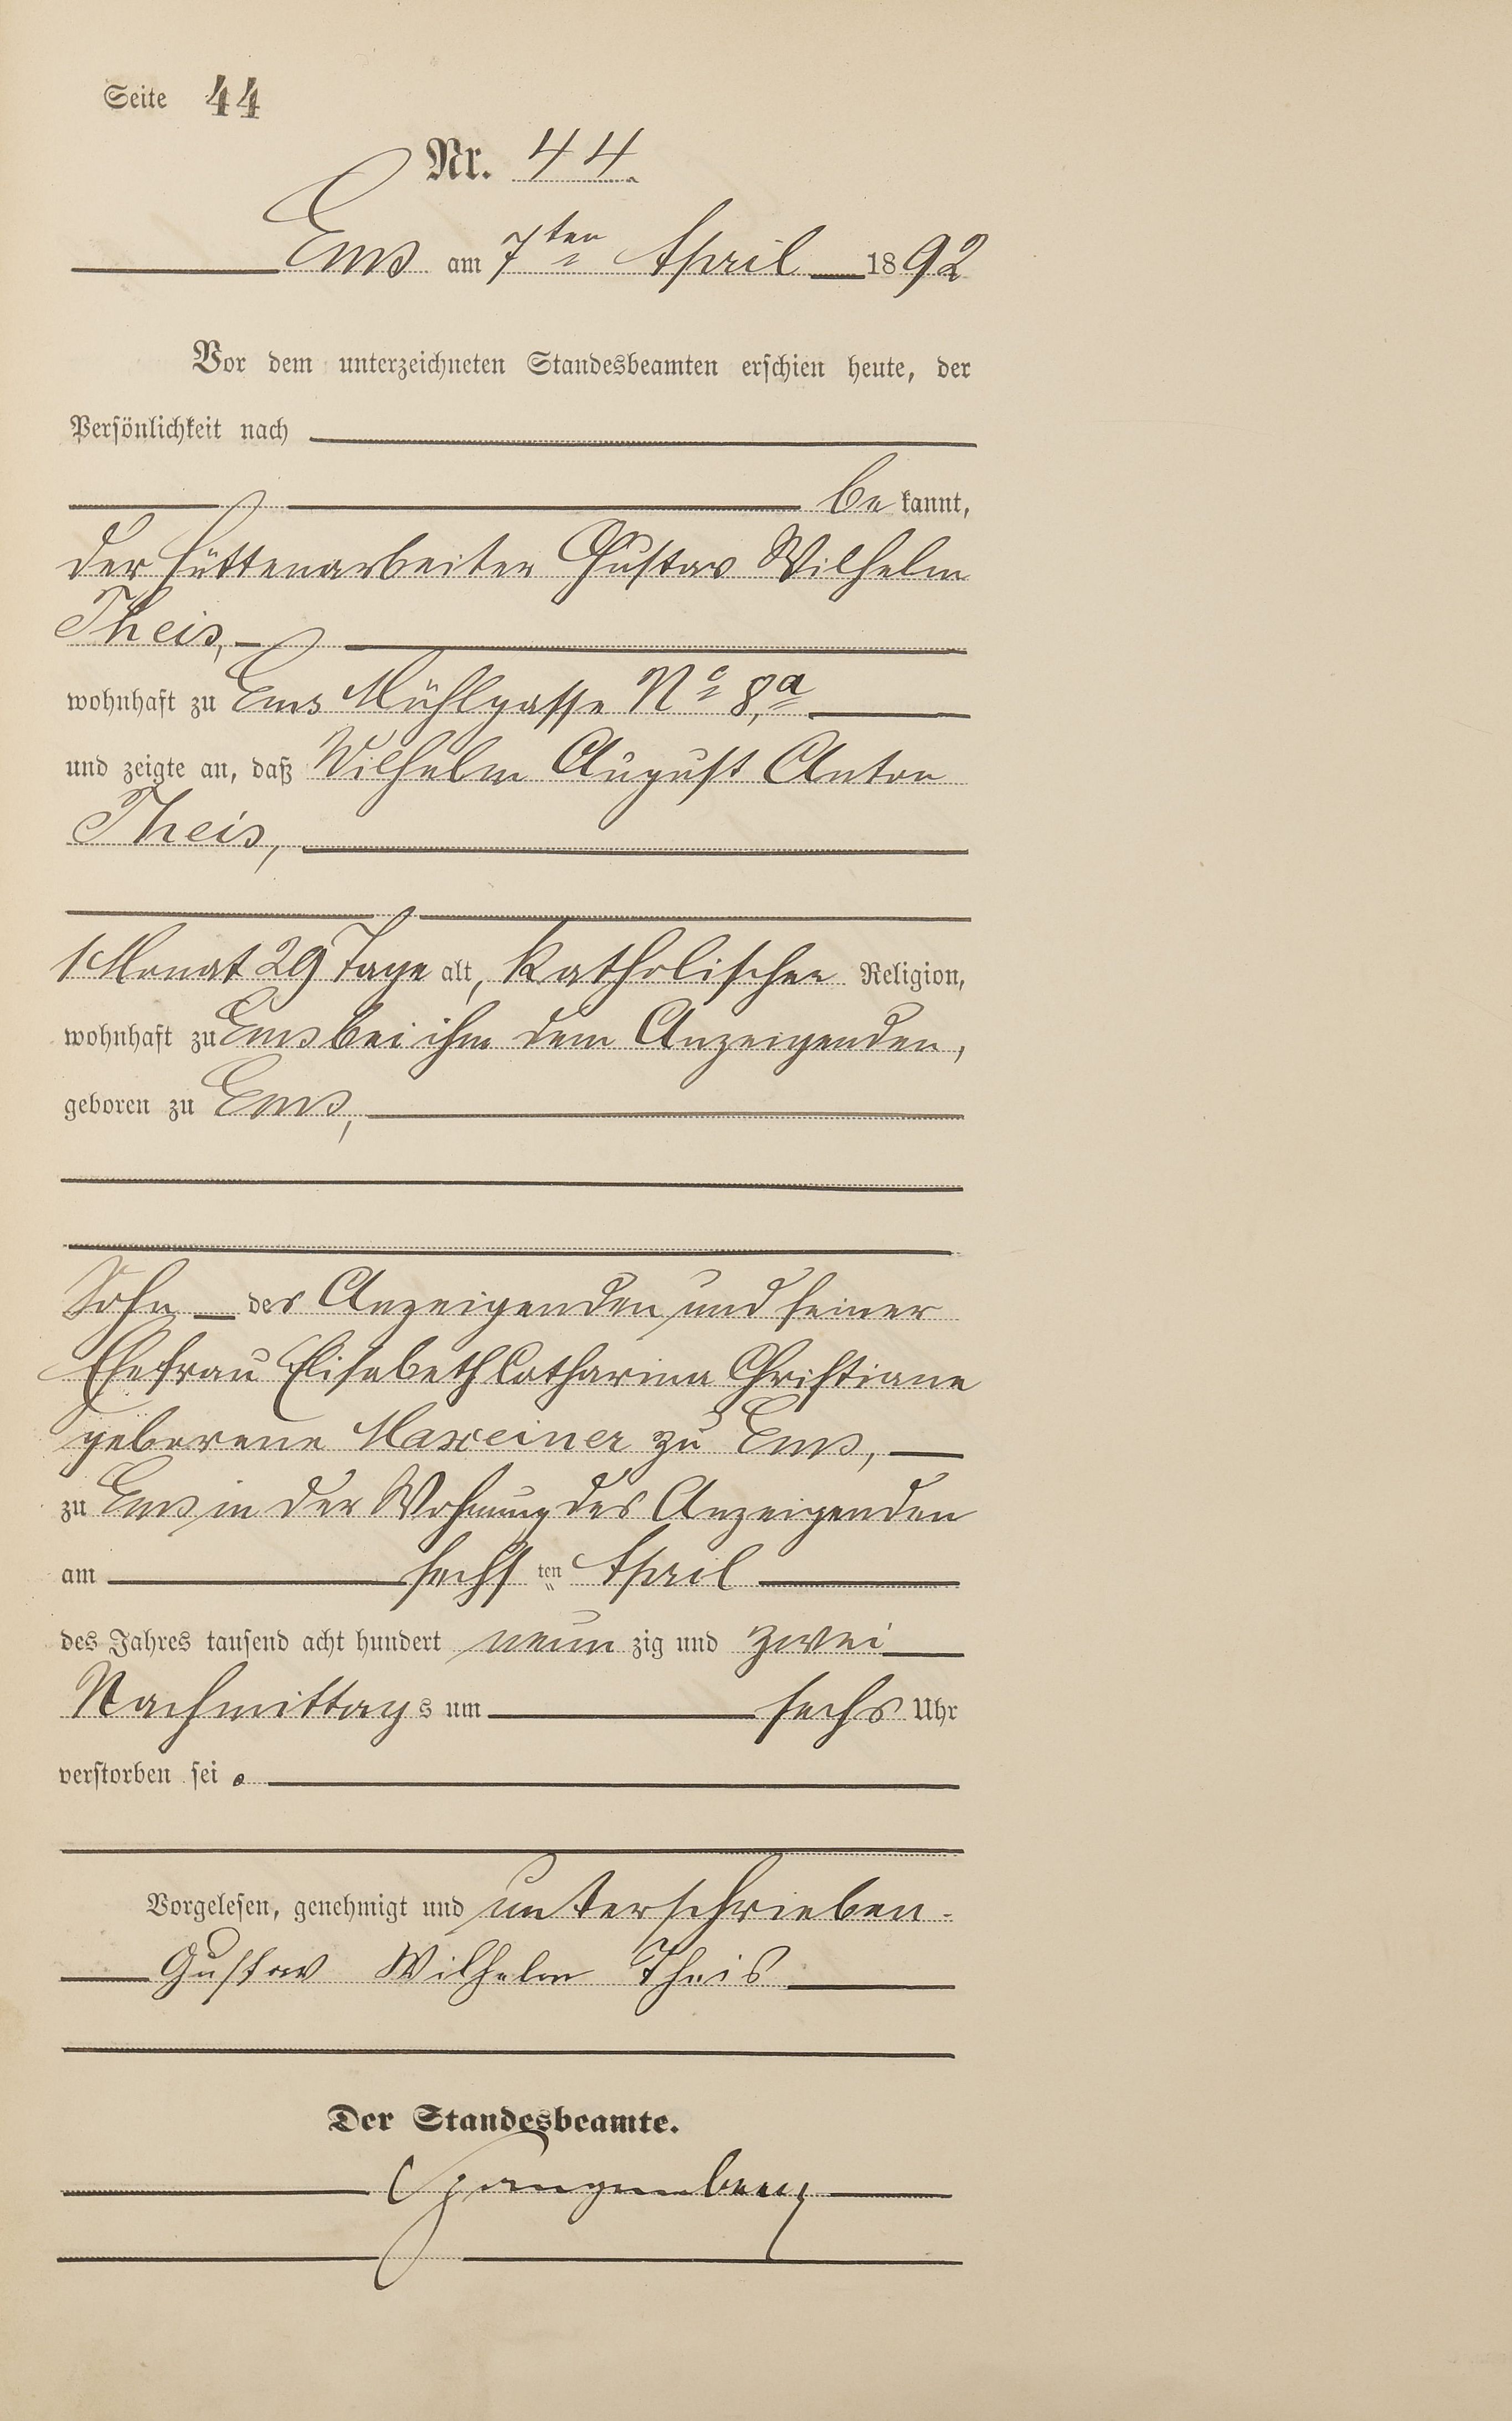 Seite 44
Nr. 44.
Ems am 7ten April 1892
Vor dem unterzeichneten Standesbeamten erschien heute, der
Persönlichkeit nach
bekannt,
der Hüttenarbeiter Gustav Wilhelm
Theis,
wohnhaft zu Ems Mühlgasse No 8a
und zeigte an, daß Wilhelm August Anton
Theis,
1 Monat 29 Tage alt, katholischer Religion,
wohnhaft zu Ems bei ihm dem Anzeigenden,
geboren zu Ems,
Sohn des Anzeigenden und seiner
Ehefrau Elisabeth Catharina Christiane
geborene Maxeiner zu Ems,
zu Ems in der Wohnung des Anzeigenden
am sechsten April
des Jahres tausend acht hundert neunzig und zwei
Nachmittags um sechs Uhr
verstorben sei.
Vorgelesen, genehmigt und unterschrieben.
Gustav Wilhelm Theis
Der Standesbeamte.
Spangenberg